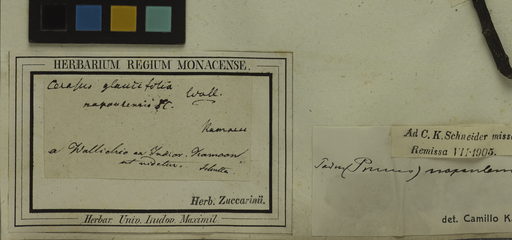 HERBARIUM REGIUM MONACENSE.
Cerasus glaucifolia Wall.
napaulensis
Kamaon
a Wallichio ex Indior. Kamaon
ut videtur.
Herb. Zuccarinii.
Herbar. Univ. Ludov. Maximil.
Ad C. K. Schneider miss
Remissa VII·1905.
(Prunus) napaulen
det. Camillo K